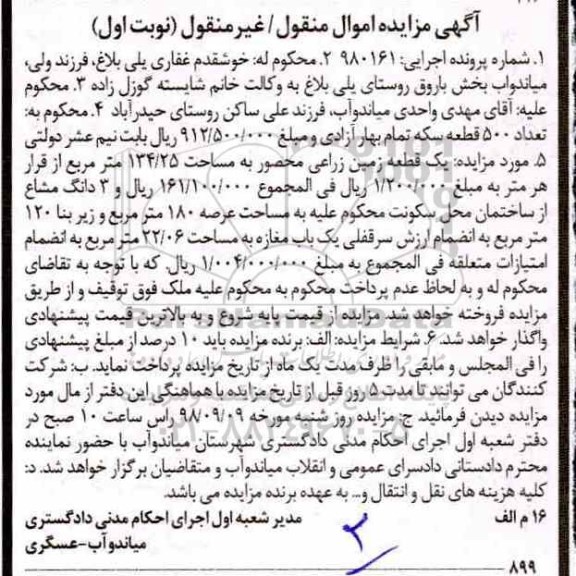 آگهی مزایده اموال منقول/ غیرمنقول (نوبت اول)
۱. شماره پرونده اجرایی: ۹۸۰۱۶۱ ۲. محکوم له: خوشقدم غفاری یلی بلاغ، فرزند ولی،
میاندواب بخش باروق روستای یلی بلاغ به وکالت خانم شایسته گوزل زاده ۳. محکوم
علیه: آقای مهدی واحدی میاندوآب، فرزند علی ساکن روستای حیدرآباد ۴. محکوم به:
تعداد ۵۰۰ قطعه سکه تمام بهار آزادی و مبلغ ۹۱۲/۵۰۰/۰۰۰ ریال بابت نیم عشر دولتی
۵. مورد مزایده: یک قطعه زمین زراعی محصور به مساحت ۱۳۴/۲۵ متر مربع از قرار
هر متر به مبلغ ۱/۲۰۰/۰۰۰ ریال فی المجموع ۱۶۱/۱۰۰/۰۰۰ ریال و ۳ دانگ مشاع
از ساختمان محل سکونت محکوم علیه به مساحت عرصه ۱۸۰ متر مربع و زیر بنا ۱۲۰
متر مربع به انضمام ارزش سرقفلی یک باب مغازه به مساحت ۲۲/۰۶ متر مربع به انضمام
امتیازات متعلقه فی المجموع به مبلغ ۱/۰۰۴/۰۰۰/۰۰۰ ریال. که با توجه به تقاضای
محکوم له و به لحاظ عدم پرداخت محکوم به محکوم علیه ملک فوق توقیف و از طریق
مزایده فروخته خواهد شد. مزایده از قیمت پایه شروع و به بالاترین قیمت پیشنهادی
واگذار خواهد شد. ۶. شرایط مزایده: الف: برنده مزایده باید ۱۰ درصد از مبلغ پیشنهادی
را فی المجلس و مابقی را ظرف مدت یک ماه از تاریخ مزایده پرداخت نماید. ب: شرکت
کنندگان می توانند تا مدت ۵ روز قبل از تاریخ مزایده با هماهنگی این دفتر از مال مورد
مزایده دیدن فرمائید. ج: مزایده روز شنبه مورخه ۹۸/۰۹/۰۹ راس ساعت ۱۰ صبح در
دفتر شعبه اول اجرای احکام مدنی دادگستری شهرستان میاندوآب با حضور نماینده
محترم دادستانی دادسرای عمومی و انقلاب میاندوآب و متقاضیان برگزار خواهد شد. د:
کلیه هزینه های نقل و انتقال و... به عهده برنده مزایده می باشد.
۱۶ م الف مدیر شعبه اول اجرای احکام مدنی دادگستری
میاندوآب-عسگری
۲
۸۹۹